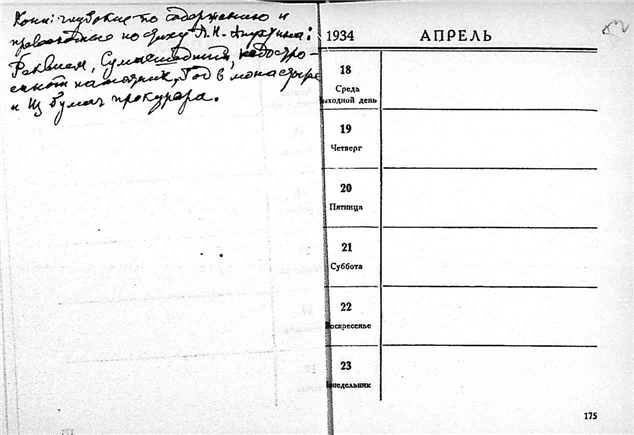 Кони: глубокие по содержанию и
превосходные по стиху А. Н. Апухтина:
Реквием, Сумасшедший, недостро-
енный памятник, Год в монастыре
и Из бумаг прокурора.
1934 АПРЕЛЬ
18
Среда
выходной день
19
Четверг
20
Пятница
21
Суббота
22
Воскресенье
23
Понедельник
175